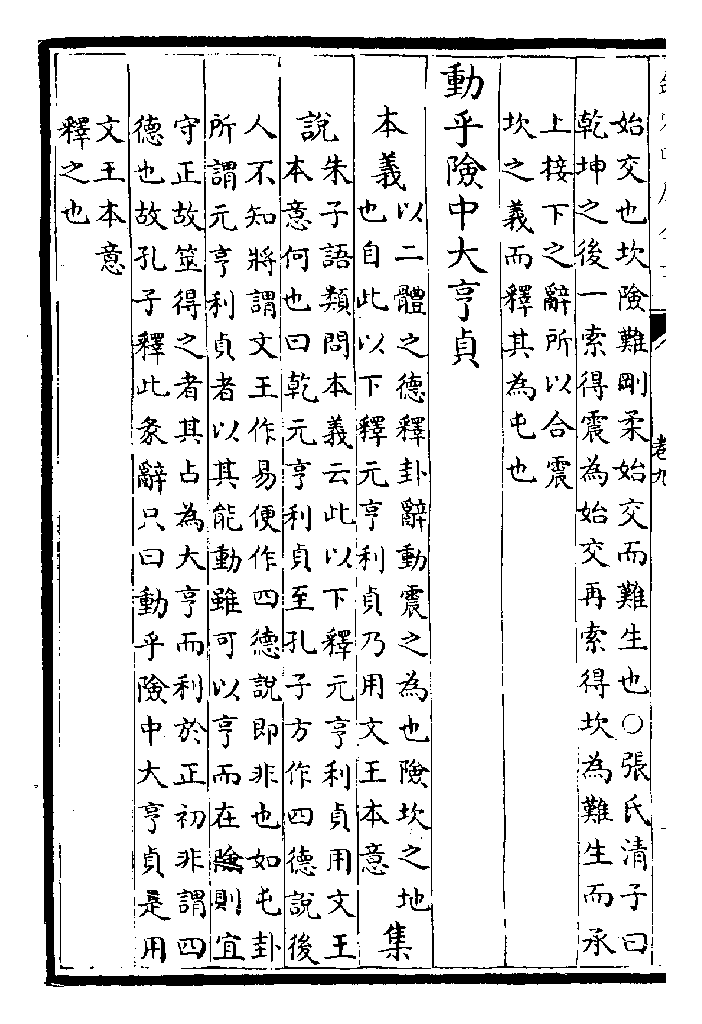 卷九
始交也坎險難剛柔始交而難生也○張氏清子曰
乾坤之後一索得震為始交再索得坎為難生而承
上接下之辭所以合震
坎之義而釋其為屯也
動乎險中大亨貞
本義以二體之德釋卦辭動震之為也險坎之地
也自此以下釋元亨利貞乃用文王本意集
說朱子語類問本義云此以下釋元亨利貞用文王
本意何也曰乾元亨利貞至孔子方作四德說後
人不知將謂文王作易便作四德說即非也如屯卦
所謂元亨利貞者以其能動雖可以亨而在險則宜
守正故筮得之者其占為大亨而利於正初非謂四
德也故孔子釋此彖辭只曰動乎險中大亨貞是用
文王本意
釋之也